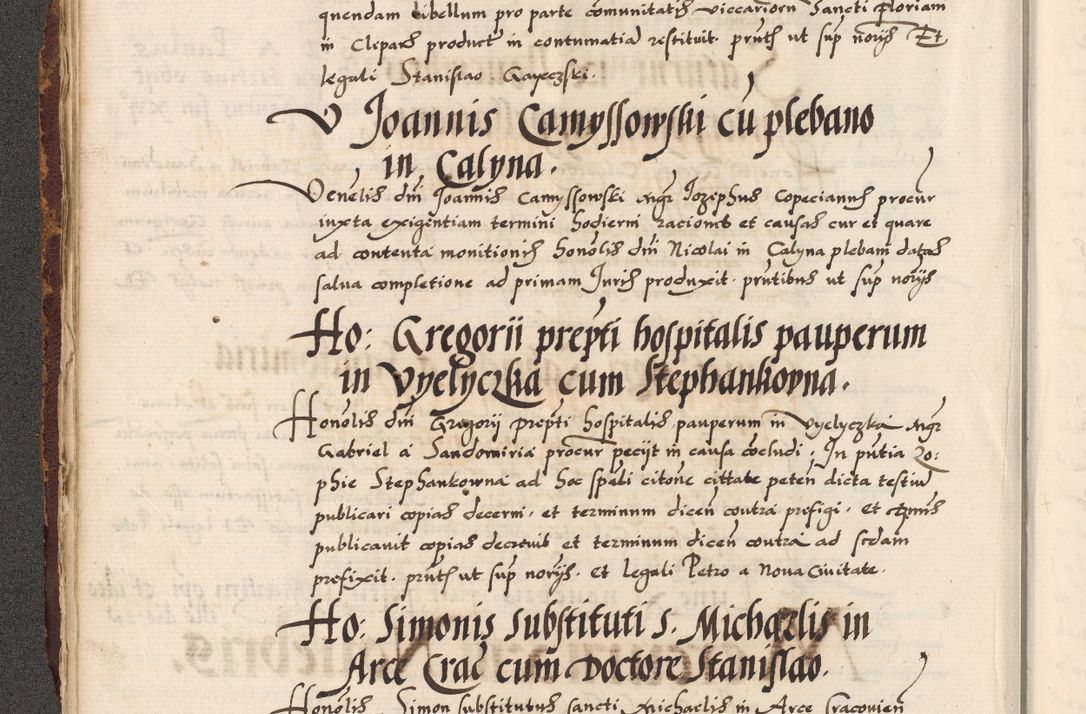 quendam libellum pro parte comunitatis viccariorum Sancti Floriani
in Clepars produxt in contumatia restituit. pruth ut sup norijs Et
legali Stanislao Gayeczski.
V Joannis Camyssowski cu plebano
in Calyna.
Venelis dni Joannis Camyssowski Mgr Jozephus Copeciannus procur
iuxta exigentiam termini hodierni racionib et causas cur et quare
ad contenta monitionis honolis dni Nicolai in Calyna plebani datas
salva completione ad primam Juris produxit. prutibus ut sup norijs
Ho: Gregorii prepti hospitalis pauperum
in Vyelyczka cum Stephankovna.
Honolis dni Gregorij prepti hospitalis pauperum in Vyelyczka Mgr
Gabriel a Sandomiria procur pecijt in causa concludi. In putia Zo:
phie Stephankowna ad hoc spali citone cittate peten dicta testiu
publicari copias decerni. et terminum dicen contra prefigi. Et
publicavit copias decrevit et terminum dicen contra ad scdam
prefixit. pruth ut sup norijs. et legali Petro a Nova Civitate.
Ho: Simonis substituti S. Michaelis in
Arce Crac cum Doctore Stanislao.
Honolis Simon substitutus sancti Michaelis in Arce Cracovien